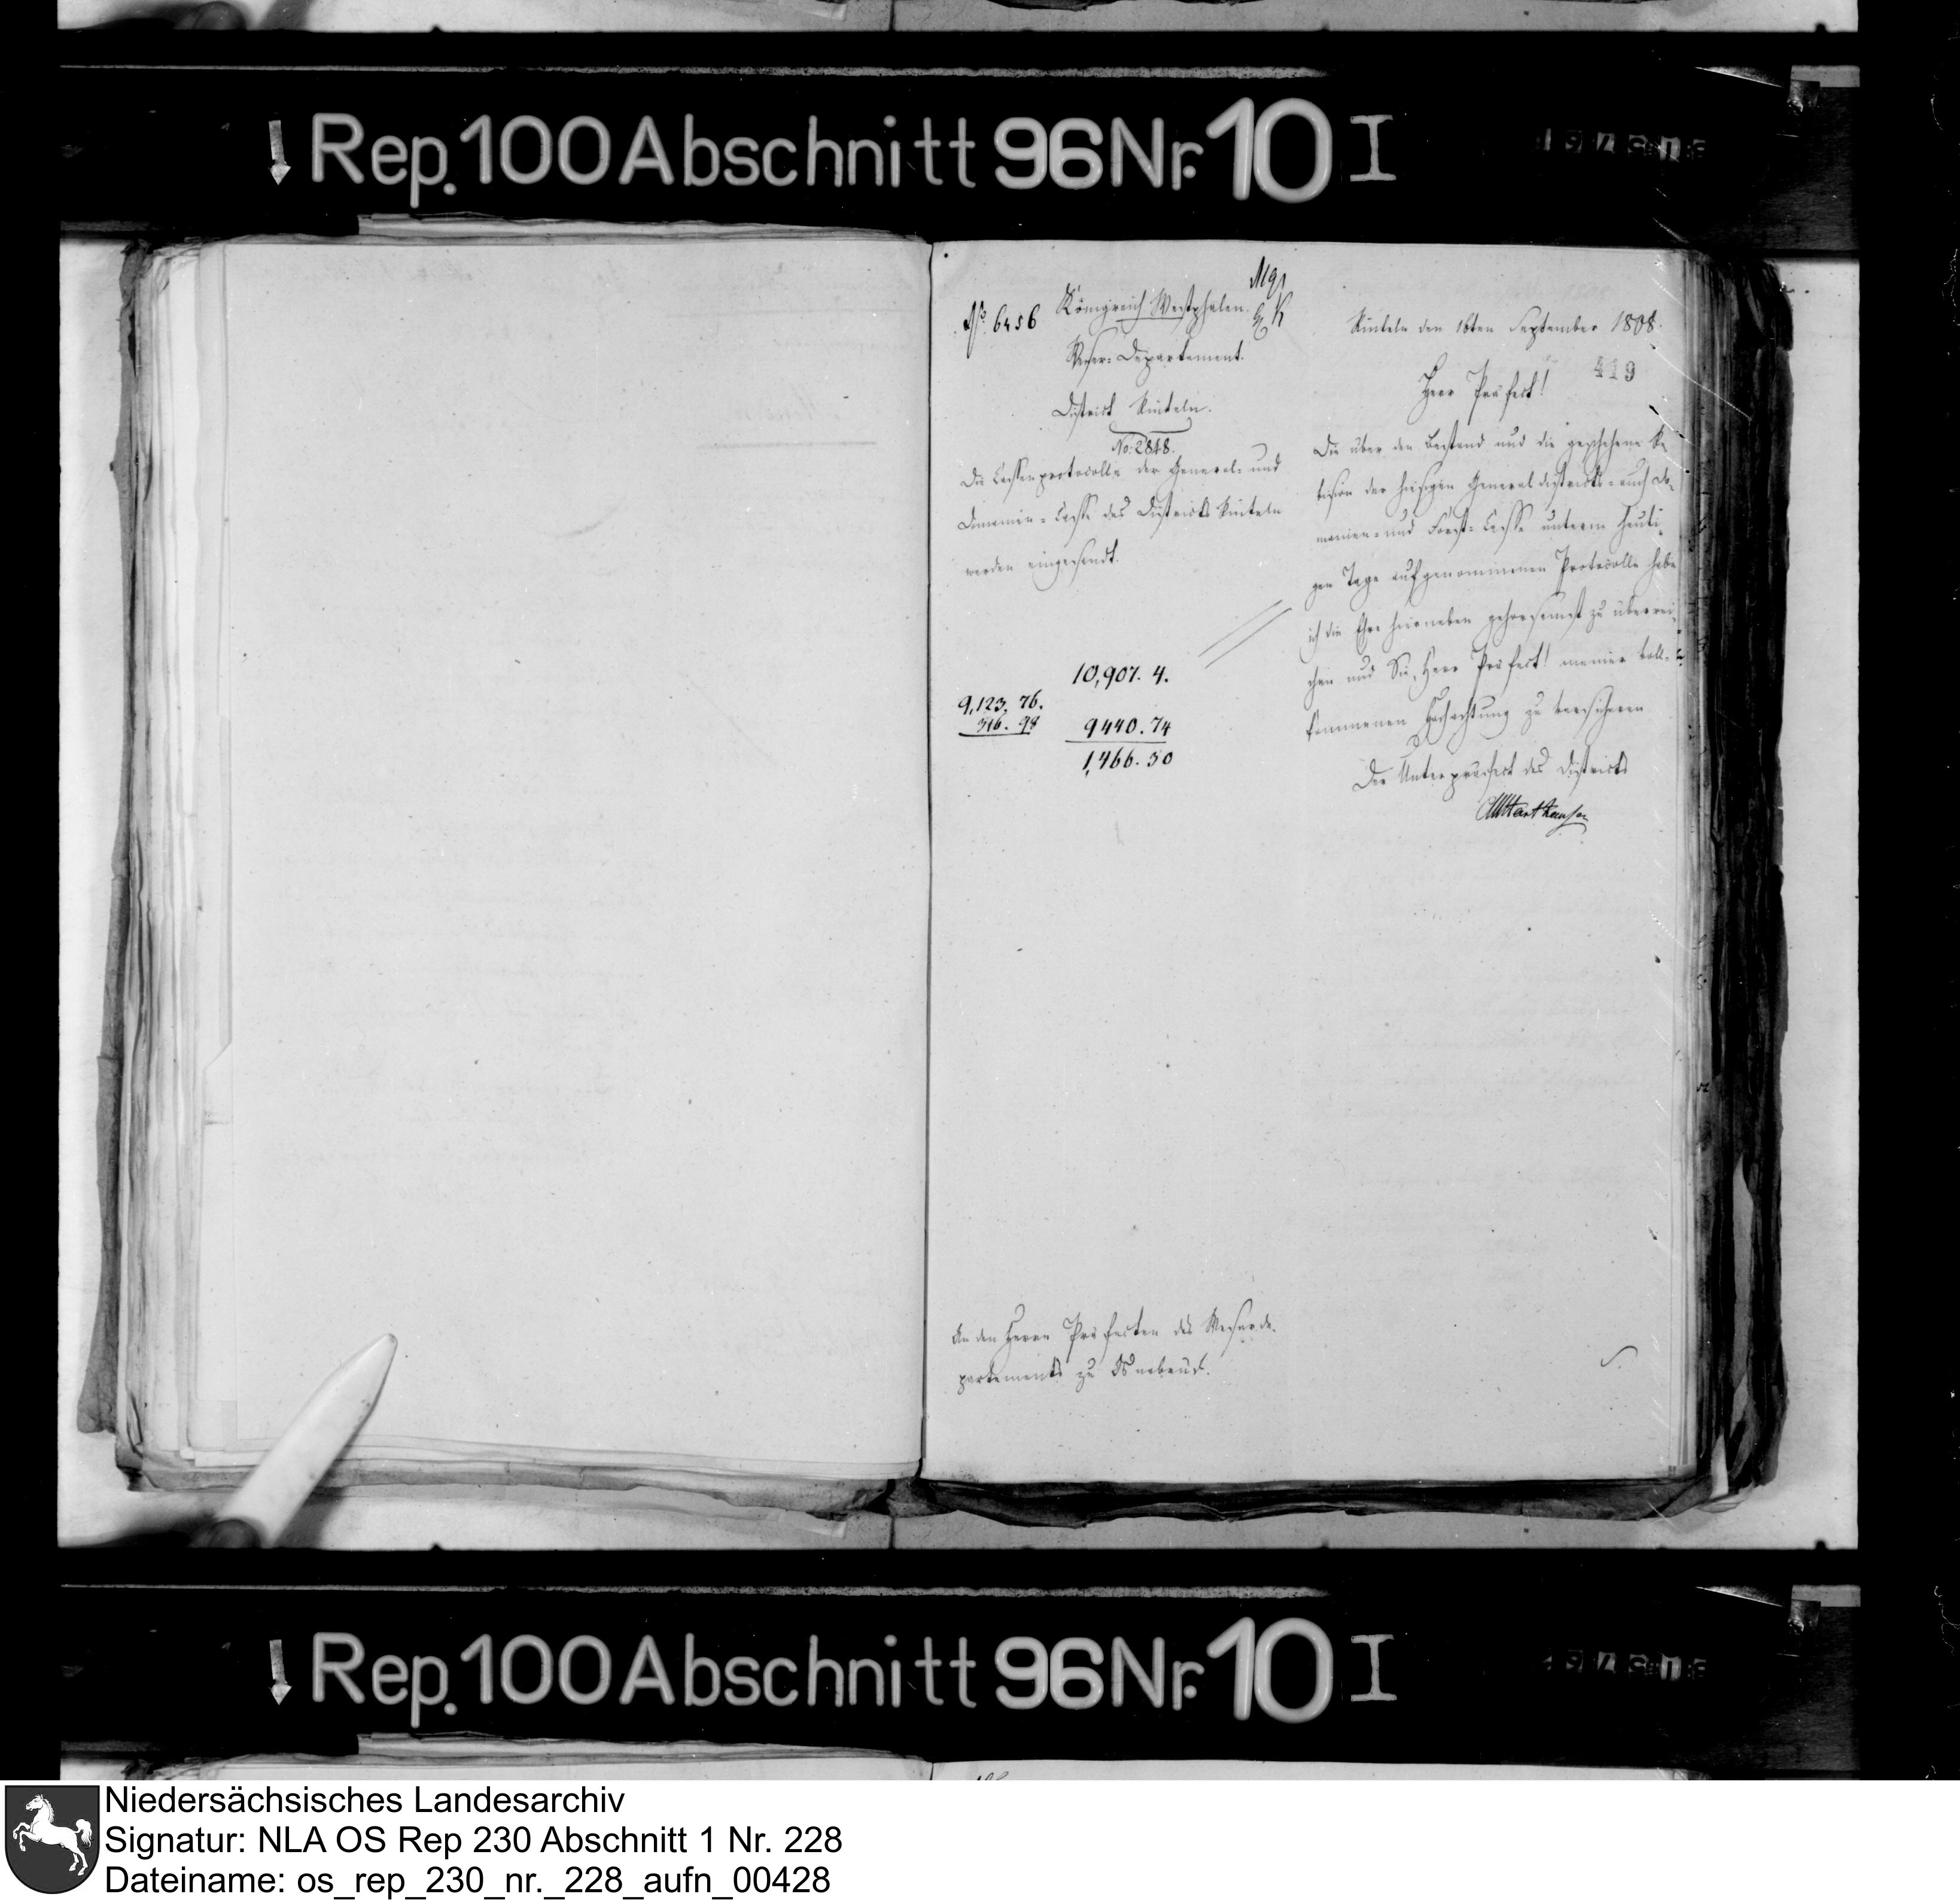 Rep. 100 Abschnitt 96 Nr. 10 I
No. 6456
Königreich Westphalen.
Weser-Departement.
District Rinteln.
No: 2848.
Die Cassenprotocolle der General- und
Domainen-Casse des Districts Rinteln
werden eingesandt.
10,907. 4.
9,123. 76.
316. 98
9440. 74
1,466. 30
An den Herrn Präfecten des Weserde-
partements zu Osnabrück.
Rinteln den 16ten September 1808.
419
Herr Präfect!
Die über den Bestand und die geschehene Re-
vision der hiesigen General districts- auch Do-
mainen- und Forst-Casse unterm heuti-
gen Tage aufgenommenen Protocolle habe
ich die Ehre hierneben gehorsamst zu überrei-
chen und Sie, Herr Präfect! meiner voll-
kommenen Hochachtung zu versichern
Der Unterpräfect des Districts
Rep. 100 Abschnitt 96 Nr. 10 I
Niedersächsisches Landesarchiv
Signatur: NLA OS Rep 230 Abschnitt 1 Nr. 228
Dateiname: os_rep_230_nr._228_aufn_00428